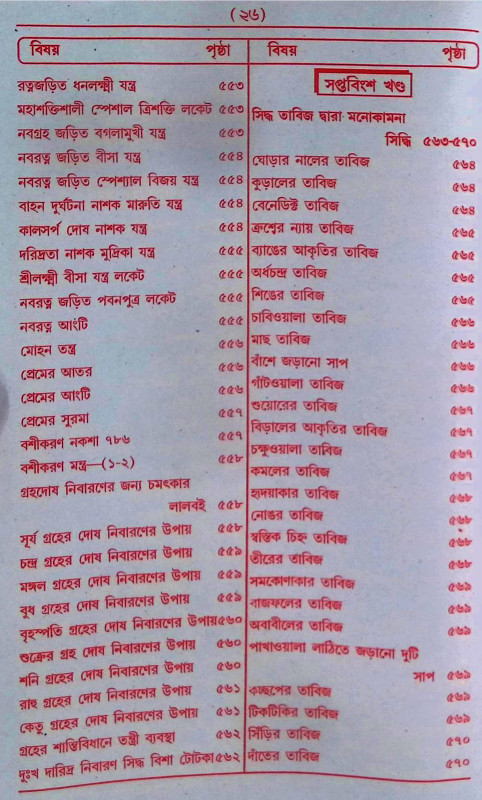 (২৬)
বিষয় পৃষ্ঠা
রত্নজড়িত ধনলক্ষ্মী যন্ত্র ৫৫৩
মহাশক্তিশালী স্পেশাল ত্রিশক্তি লকেট ৫৫৩
নবগ্রহ জড়িত বগলামুখী যন্ত্র ৫৫৩
নবরত্ন জড়িত বীসা যন্ত্র ৫৫৪
নবরত্ন জড়িত স্পেশ্যাল বিজয় যন্ত্র ৫৫৪
বাহন দুর্ঘটনা নাশক মারুতি যন্ত্র ৫৫৪
কালসর্প দোষ নাশক যন্ত্র ৫৫৪
দরিদ্রতা নাশক মুদ্রিকা যন্ত্র ৫৫৫
শ্রীলক্ষ্মী বীসা যন্ত্র লকেট ৫৫৫
নবরত্ন জড়িত পবনপুত্র লকেট ৫৫৫
নবরত্ন আংটি ৫৫৫
মোহন তন্ত্র ৫৫৬
প্রেমের আতর ৫৫৬
প্রেমের আংটি ৫৫৬
প্রেমের সুরমা ৫৫৭
বশীকরণ নকশা ৭৮৬ ৫৫৭
বশীকরণ মন্ত্র—(১-২) ৫৫৮
গ্রহদোষ নিবারণের জন্য চমৎকার
লালবই ৫৫৮
সূর্য গ্রহের দোষ নিবারণের উপায় ৫৫৮
চন্দ্র গ্রহের দোষ নিবারণের উপায় ৫৫৯
মঙ্গল গ্রহের দোষ নিবারণের উপায় ৫৫৯
বুধ গ্রহের দোষ নিবারণের উপায় ৫৫৯
বৃহস্পতি গ্রহের দোষ নিবারণের উপায় ৫৬০
শুক্রের গ্রহ দোষ নিবারণের উপায় ৫৬০
শনি গ্রহের দোষ নিবারণের উপায় ৫৬০
রাহু গ্রহের দোষ নিবারণের উপায় ৫৬১
কেতু গ্রহের দোষ নিবারণের উপায় ৫৬১
গ্রহের শান্তিবিধানে তন্ত্রী ব্যবস্থা ৫৬২
দুঃখ দারিদ্র নিবারণ সিদ্ধ বিশা টোটকা ৫৬২
বিষয় পৃষ্ঠা
সপ্তবিংশ খণ্ড
সিদ্ধ তাবিজ দ্বারা মনোকামনা
সিদ্ধি ৫৬৩-৫৭০
ঘোড়ার নালের তাবিজ ৫৬৪
কুড়ালের তাবিজ ৫৬৪
বেনেডিষ্ট তাবিজ ৫৬৪
ক্রুশের ন্যায় তাবিজ ৫৬৫
ব্যাঙের আকৃতির তাবিজ ৫৬৫
অর্ধচন্দ্র তাবিজ ৫৬৫
শিঙের তাবিজ ৫৬৫
চাবিওয়ালা তাবিজ ৫৬৬
মাছ তাবিজ ৫৬৬
বাঁশে জড়ানো সাপ ৫৬৬
গাঁটওয়ালা তাবিজ ৫৬৬
শুয়োরের তাবিজ ৫৬৭
বিড়ালের আকৃতির তাবিজ ৫৬৭
চক্ষুওয়ালা তাবিজ ৫৬৭
কমলের তাবিজ ৫৬৭
হৃদয়াকার তাবিজ ৫৬৮
নোঙর তাবিজ ৫৬৮
স্বস্তিক চিহ্ন তাবিজ ৫৬৮
তীরের তাবিজ ৫৬৮
সমকোণাকার তাবিজ ৫৬৯
বাজফলের তাবিজ ৫৬৯
অবাবীলের তাবিজ ৫৬৯
পাখাওয়ালা লাঠিতে জড়ানো দুটি
সাপ ৫৬৯
কচ্ছপের তাবিজ ৫৬৯
টিকটিকির তাবিজ ৫৬৯
সিঁড়ির তাবিজ ৫৭০
দাঁতের তাবিজ ৫৭০